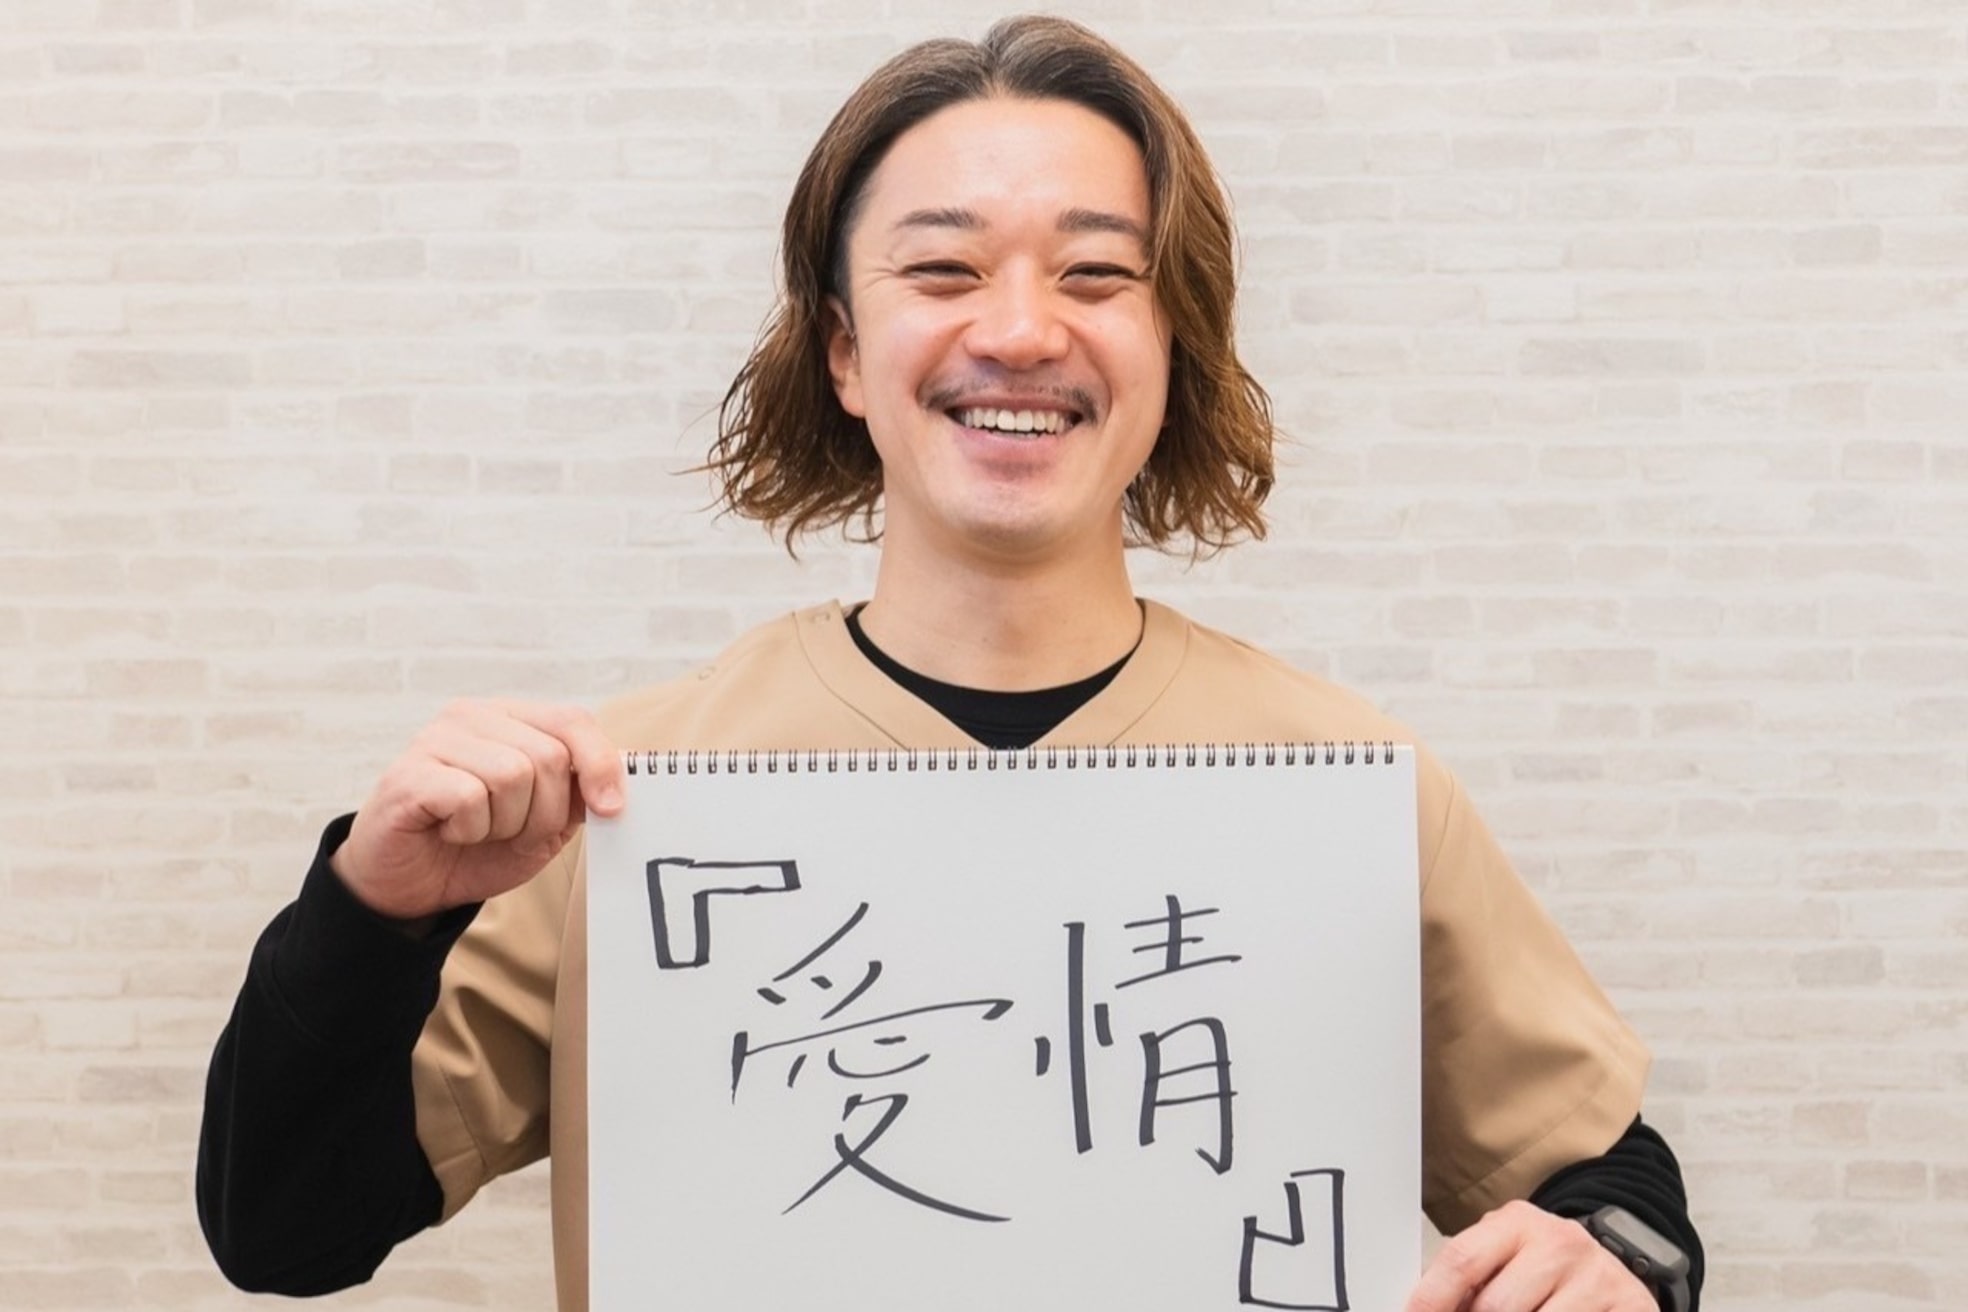 『愛情』